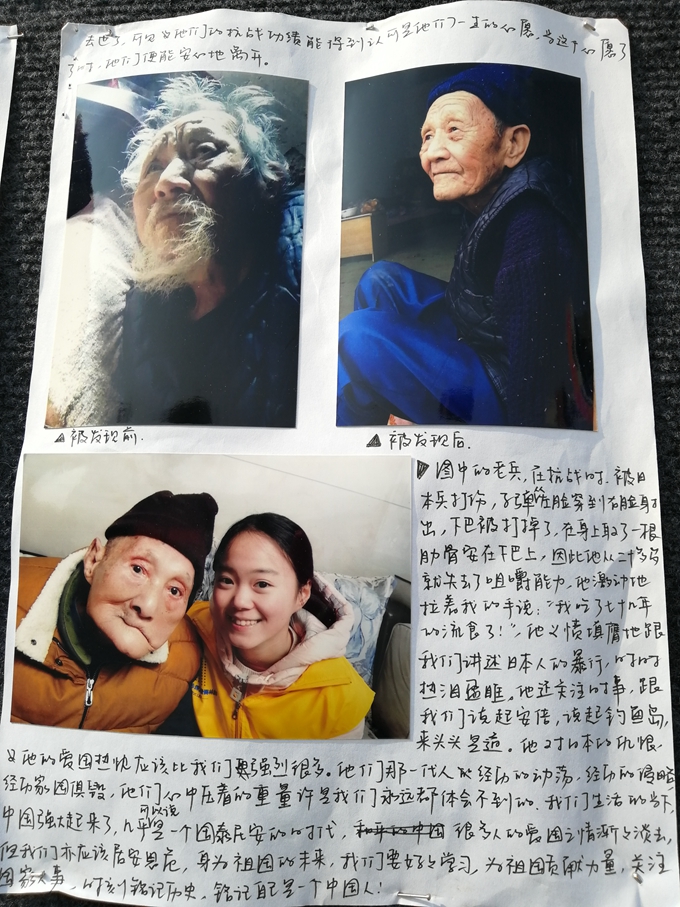 去世了，所以他们的抗战功绩能得到认可是他们一生的心愿，当这个心愿了
了时，他们便能安心地离开。
▲被发现前.
▲被发现后.
图中的老兵，在抗战时，被日
本兵打伤，子弹从左脸穿到右脸射
出，下巴被打掉了，在身上取了一根
肋骨安在下巴上，因此他从二十多岁
就失去了咀嚼能力，他激动地
拉着我的手说：“我吃了七十九年
的流食了！”他义愤填膺地跟
我们讲述日本人的暴行，时时
热泪盈眶。他还关注时事，跟
我们谈起安倍，谈起钓鱼岛，
来头头是道。他对日本的仇恨，
他的爱国热忱应该比我们要强烈很多。他们那一代人所经历的动荡，经历的侵略，
经历家园俱毁，他们心中压着的重量许是我们永远都体会不到的。我们生活的当下，
中国强大起来了，可以说是一个国泰民安的时代，很多人的爱国之情渐渐淡去，
但我们亦应该居安思危，身为祖国的未来，我们要好好学习，为祖国贡献力量，关注
国家大事，时刻铭记历史，铭记自己是一个中国人！